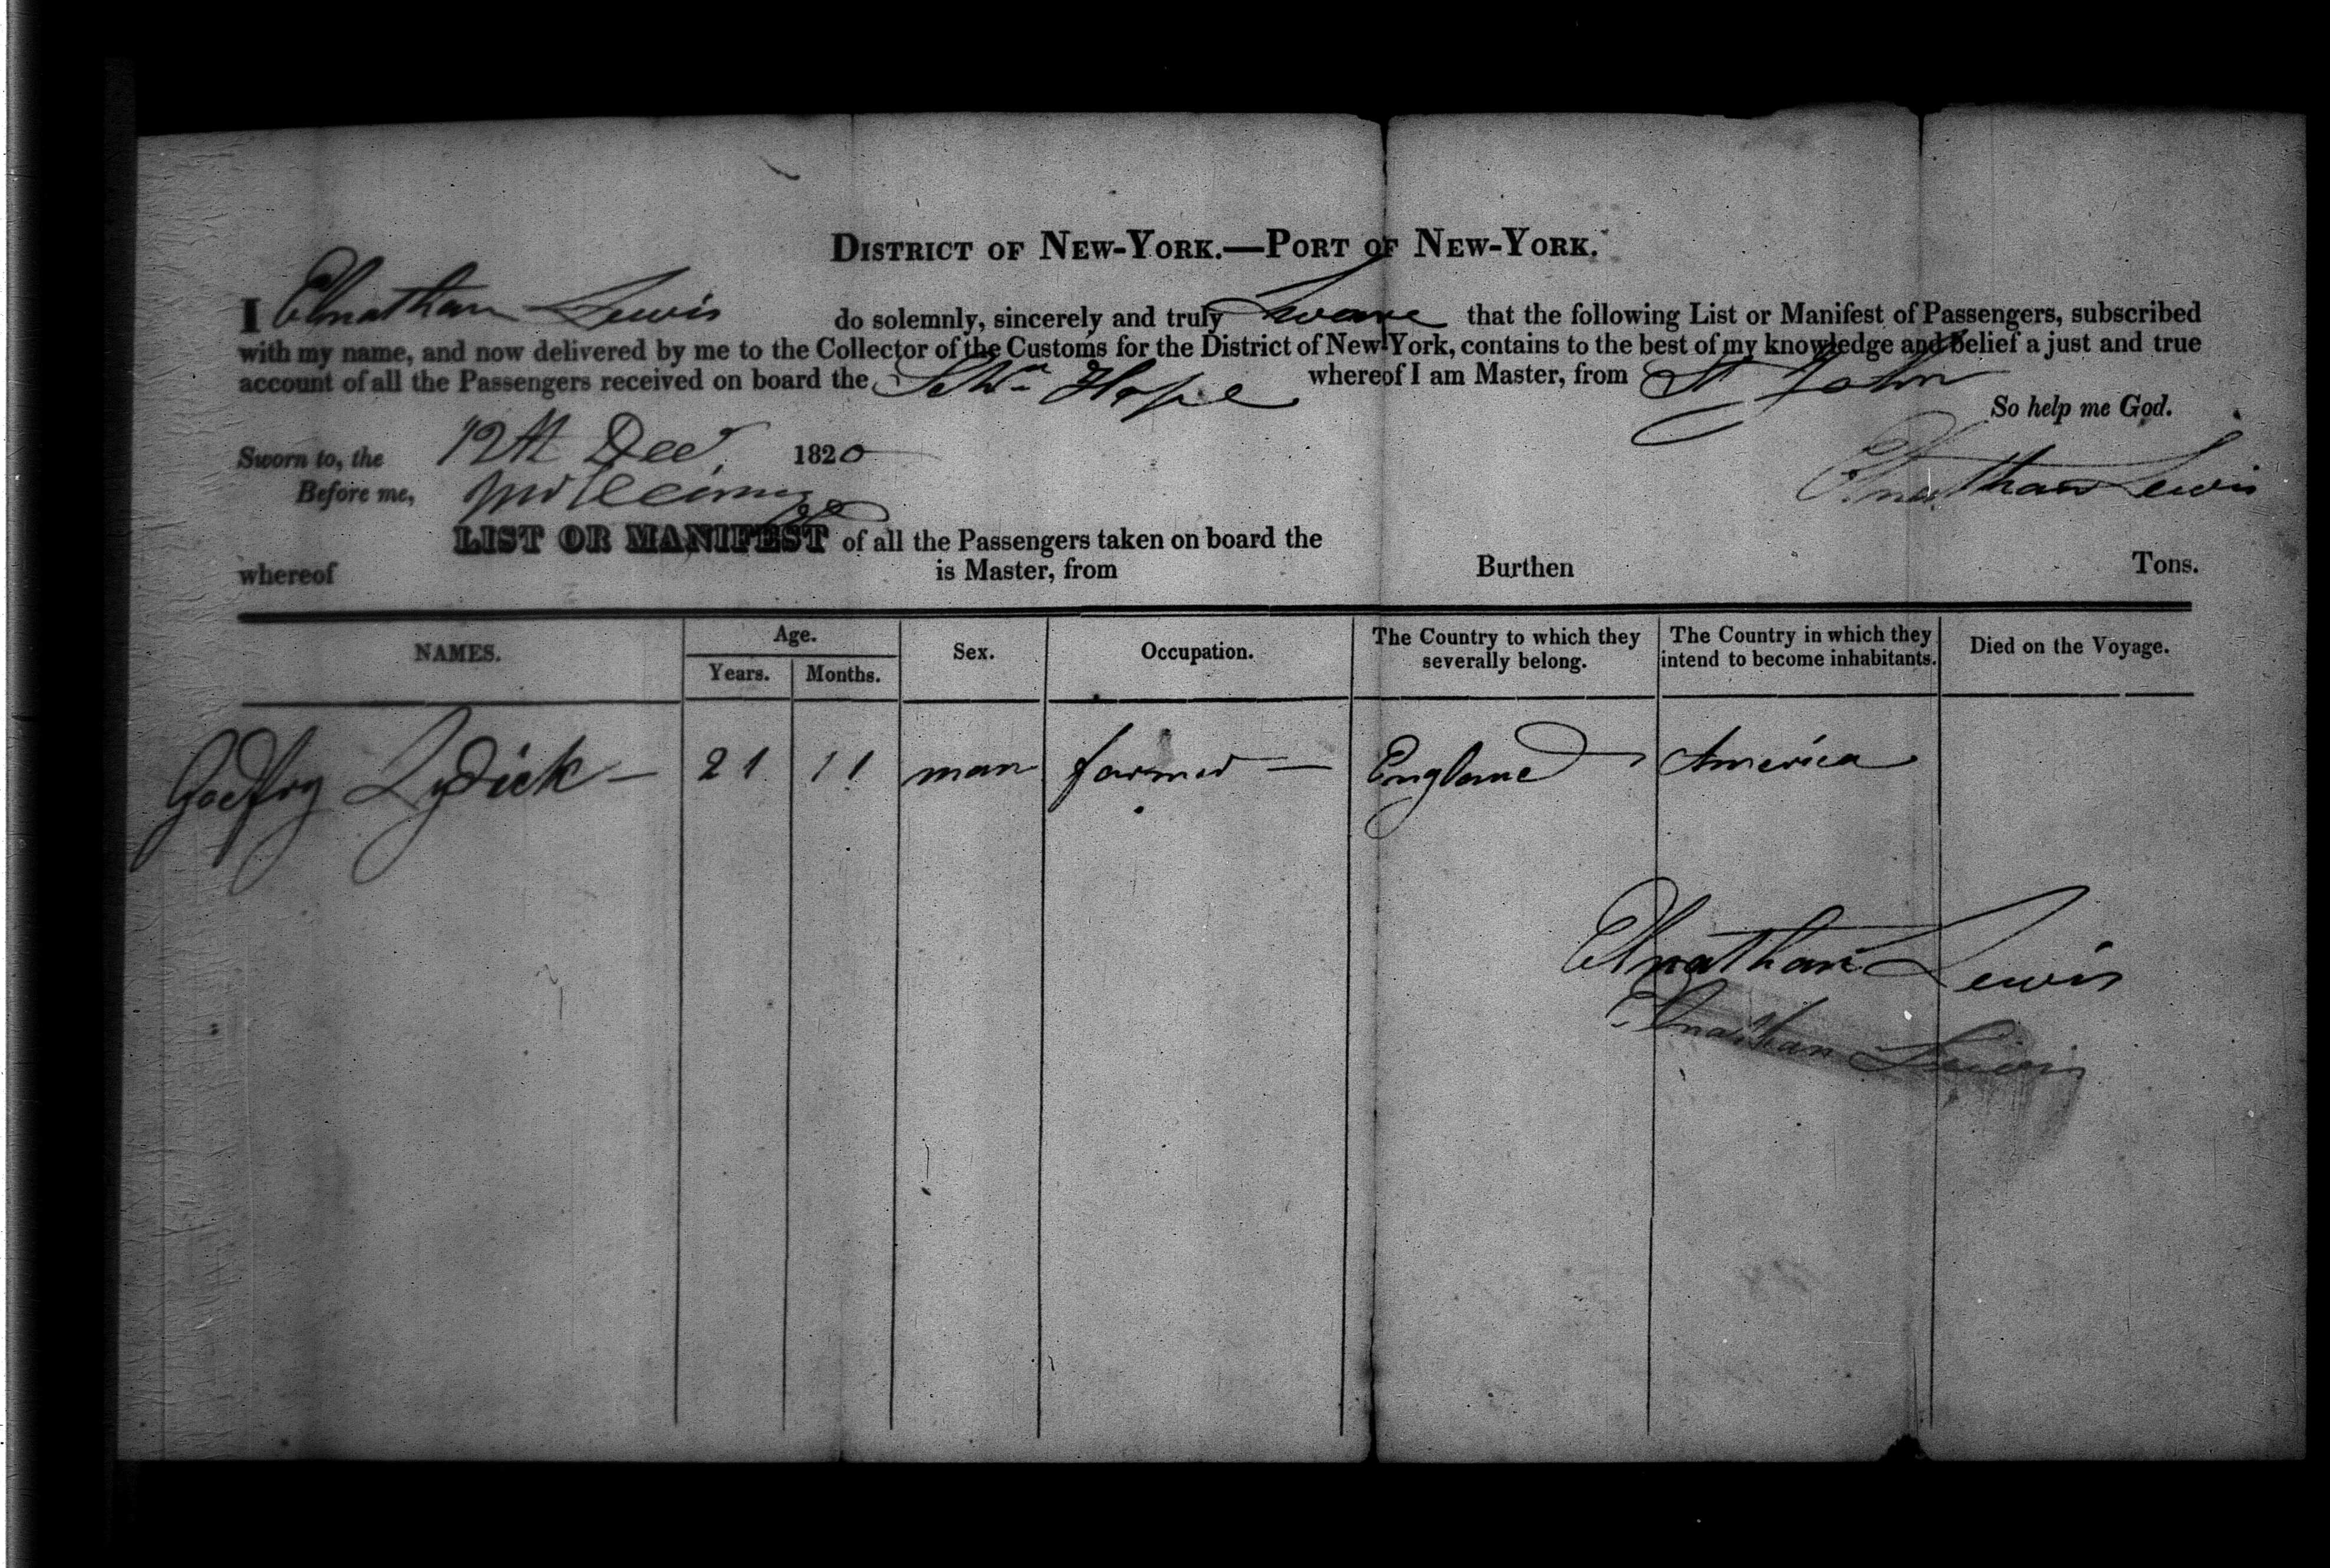 DISTRICT OF NEW-YORK.—PORT OF NEW-YORK.
I Elnathan Lewis do solemnly, sincerely and truly Sware that the following List or Manifest of Passengers, subscribed
with my name, and now delivered by me to the Collector of the Customs for the District of New-York, contains to the best of my knowledge and belief a just and true
account of all the Passengers received on board the Schr Hope whereof I am Master, from St John
So help me God.
Sworn to, the 12th Decr 1820
Elnathan Lewis
Before me,
LIST OR MANIFEST of all the Passengers taken on board the
whereof is Master, from Burthen Tons.
NAMES. Age. Years. Months. Sex. Occupation. The Country to which they severally belong. The Country in which they intend to become inhabitants. Died on the Voyage.
Godfry Lydick — 21 11 man farmer — England America
Elnathan Lewis
Elnathan Lewis